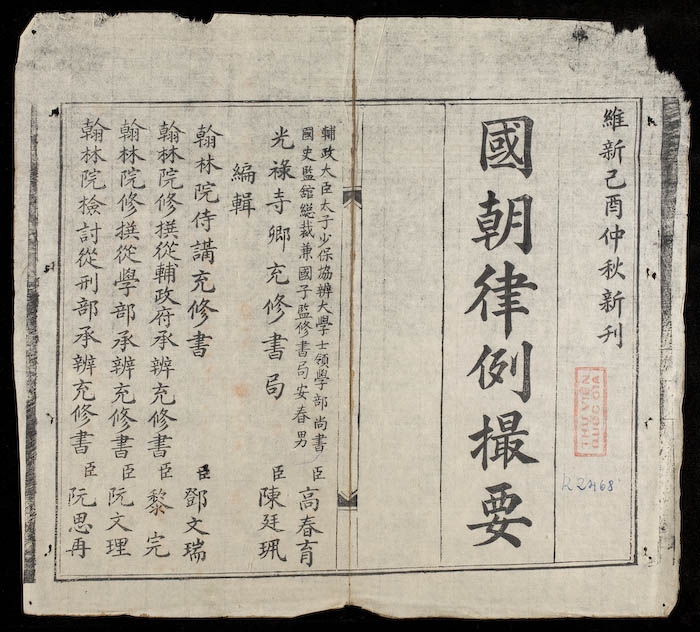 維新己酉仲秋新刊
國朝律例撮要
THƯ VIỆN
QUỐC GIA
R.2468
輔政大臣太子少保協辨大學士領學部尚書
國史監舘總裁兼國子監修書局安春男
臣高春育
光祿寺卿充修書局臣陳廷珮
編輯
翰林院侍講充修書臣鄧文瑞
翰林院修撰從輔政府承辨充修書臣黎完
翰林院修撰從學部承辨充修書臣阮文理
翰林院檢討從刑部承辨充修書臣阮思再